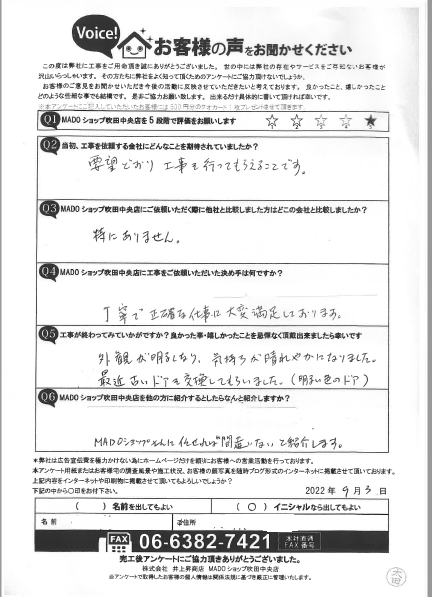 Voice!
お客様の声をお聞かせください
この度は弊社に工事をご用命頂き誠にありがとうございました。世の中には弊社の存在やサービスをご存じないお客様が
沢山いらっしゃいます。その方たちに弊社をよく知って頂くためのアンケートにご協力頂けないでしょうか。
お客様のご意見をお聞かせいただき今後の活動に反映させていただきたいと考えております。良かったこと、嬉しかったこと
どのような些細な事でも結構です。是非ご協力お願い致します。出来るだけ具体的に書いて頂ければ幸いです。
※本アンケートにご記入していただいたお客様には500円分のクオカードをプレゼントさせて頂きます。
Q1 MADOショップ吹田中央店を5段階で評価をお願いします ☆ ☆ ☆ ☆ ★
Q2 当初、工事を依頼する会社にどんなことを期待されていましたか?
要望どおり工事を行ってもらえることです。
Q3 MADOショップ吹田中央店にご依頼いただく際に他社と比較しました方はどこの会社と比較しましたか?
特にありません。
Q4 MADOショップ吹田中央店に工事をご依頼いただいた決め手は何ですか?
丁寧で正確な仕事に大変満足しております。
Q5 工事が終わってみていかがですか?良かった事・嬉しかったことを忌憚なく頂戴出来ましたら幸いです
外観が明るくなり、気持ちが晴れやかになりました。
最近古いドアも交換してもらいました。(明るい色のドア)
Q6 MADOショップ吹田中央店を他の方に紹介するとしたらなんと紹介しますか?
MADOショップさんに任せれば"間違いない"で紹介します。
*弊社は広告宣伝費を極力かけない為にホームページだけを頼りにお客様への営業活動を行っております。
本アンケート用紙またはお客様宅の調査風景や施工状況、お客様の顔写真を随時ブログ形式のインターネットに掲載させて頂いております。
上記内容をインターネットや印刷物に掲載させて頂いてもよろしいでしょうか?
下記の中から〇印をお付下さい。
2022年9月3日
( )名前を出してもよい
(○)イニシャルなら出してもよい
名前
ご住所
FAX 06-6382-7421 本社直通 FAX番号
完工後アンケートにご協力頂きありがとうございました。
株式会社 井上昇商店 MADOショップ吹田中央店
※アンケートで取得したお客様の個人情報は関係法規に基づき厳正に管理いたします。